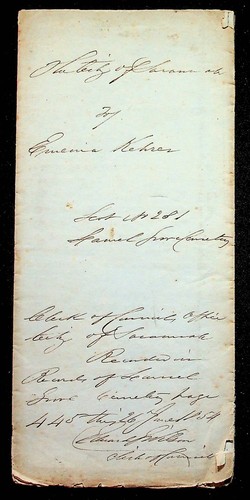 The City of Savannah
To
Emenia Kehrer
Lot No 281
Laurel Grove Cemetery
Clerk of Councils Office
City of Savannah
Recorded in
Records of Laurel
Grove Cemetery page
445 this 26 June 1854
Edward Wilson
Clk of Council